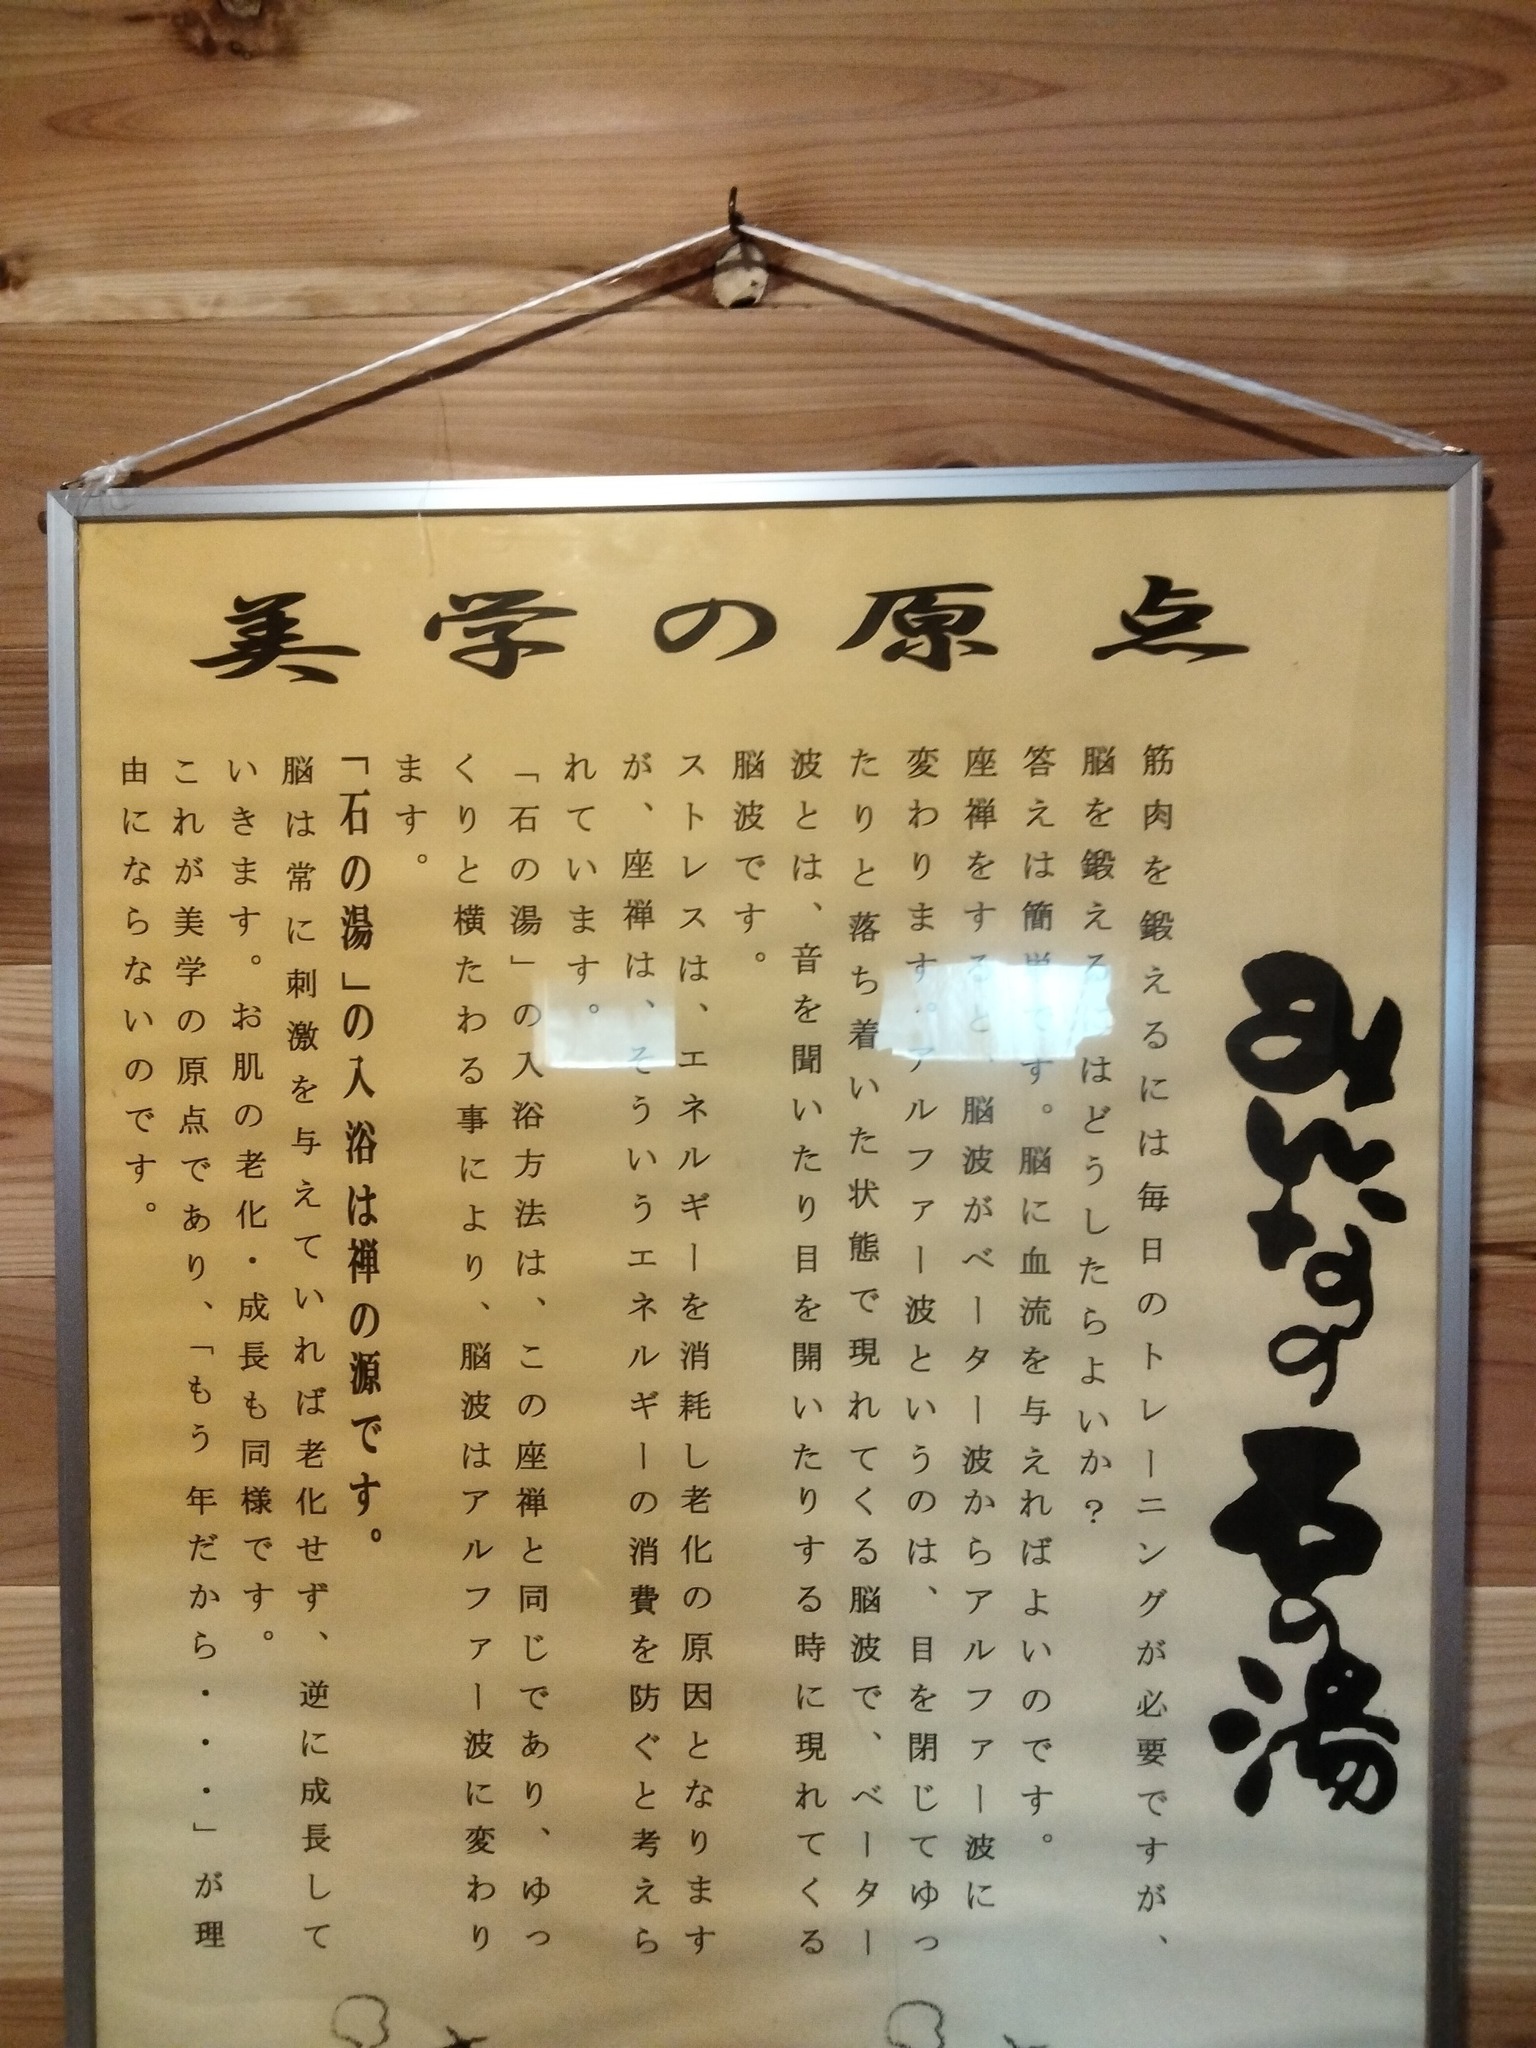 美学の原点
みんなの石の湯
筋肉を鍛えるには毎日のトレーニングが必要ですが、
脳を鍛えるにはどうしたらよいか？
答えは簡単です。脳に血流を与えればよいのです。
座禅をすると、脳波がベーター波からアルファー波に
変わります。アルファー波というのは、目を閉じてゆっ
たりと落ち着いた状態で現れてくる脳波で、ベーター
波とは、音を聞いたり目を開いたりする時に現れてくる
脳波です。
ストレスは、エネルギーを消耗し老化の原因となります
が、座禅は、そういうエネルギーの消費を防ぐと考えら
れています。
「石の湯」の入浴方法は、この座禅と同じであり、ゆっ
くりと横たわる事により、脳波はアルファー波に変わり
ます。
「石の湯」の入浴は禅の源です。
脳は常に刺激を与えていれば老化せず、逆に成長して
いきます。お肌の老化・成長も同様です。
これが美学の原点であり、「もう年だから・・・・」が理
由にならないのです。